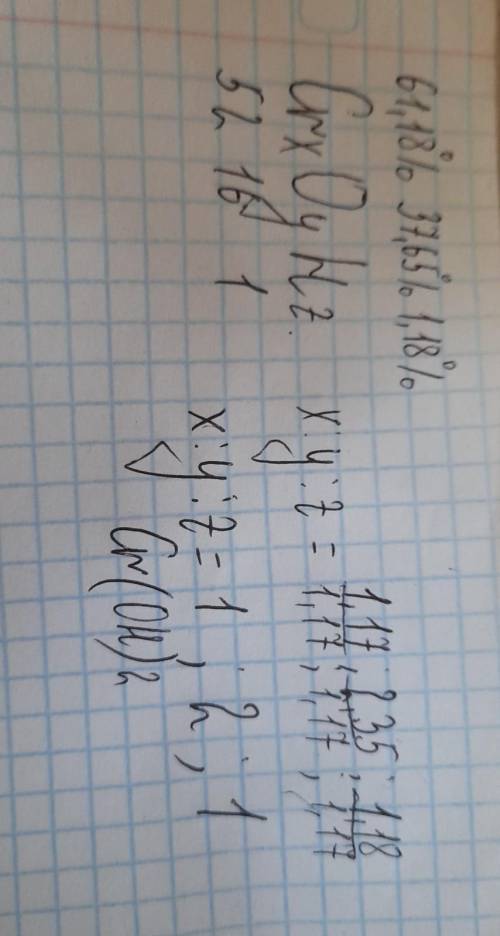 61,18% 37,65% 1,18%
CrxOyHz.
52 16 1
x:y:z = 1,17/1,17 : 2,35/1,17 : 1,18/1,17
x:y:z = 1 : 2 : 1
Cr(OH)2